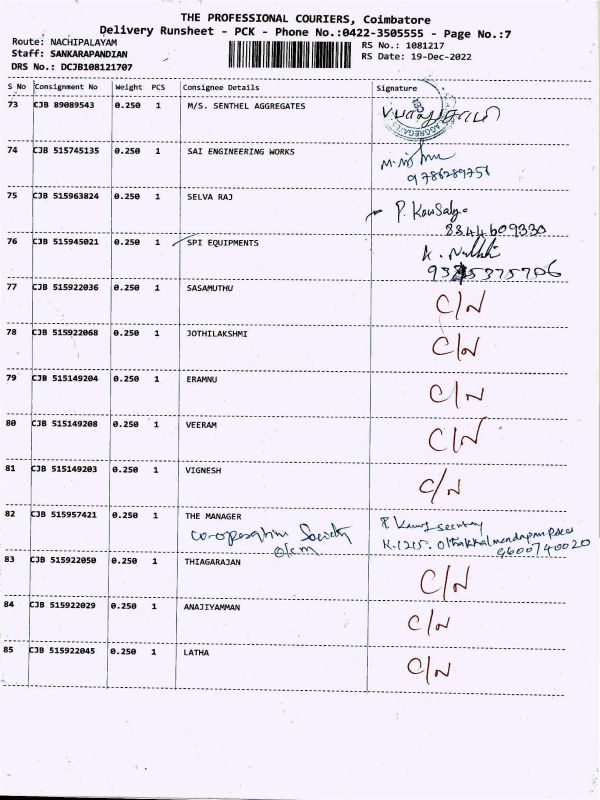 THE PROFESSIONAL COURIERS, Coimbatore
Delivery Runsheet - PCK - Phone No.:0422-3505555 - Page No.:7
Route: NACHIPALAYAM
RS No.: 1081217
Staff: SANKARAPANDIAN
RS Date: 19-Dec-2022
DRS No.: DCJB108121707
S No Consignment No Weight PCS Consignee Details Signature
73 CJB 89089543 0.250 1 M/S. SENTHEL AGGREGATES
74 CJB 515745135 0.250 1 SAI ENGINEERING WORKS
9786289751
75 CJB 515963824 0.250 1 SELVA RAJ
P. Kousalya
8344609330
76 CJB 515945021 0.250 1 SPI EQUIPMENTS
77 CJB 515922036 0.250 1 SASAMUTHU C/N
78 CJB 515922068 0.250 1 JOTHILAKSHMI C/N
79 CJB 515149204 0.250 1 ERAMNU C/N
80 CJB 515149208 0.250 1 VEERAM C/N
81 CJB 515149203 0.250 1 VIGNESH C/N
82 CJB 515957421 0.250 1 THE MANAGER
co-operative Society
K.1215.
9600740020
83 CJB 515922050 0.250 1 THIAGARAJAN C/N
84 CJB 515922029 0.250 1 ANAJIYAMMAN C/N
85 CJB 515922045 0.250 1 LATHA C/N